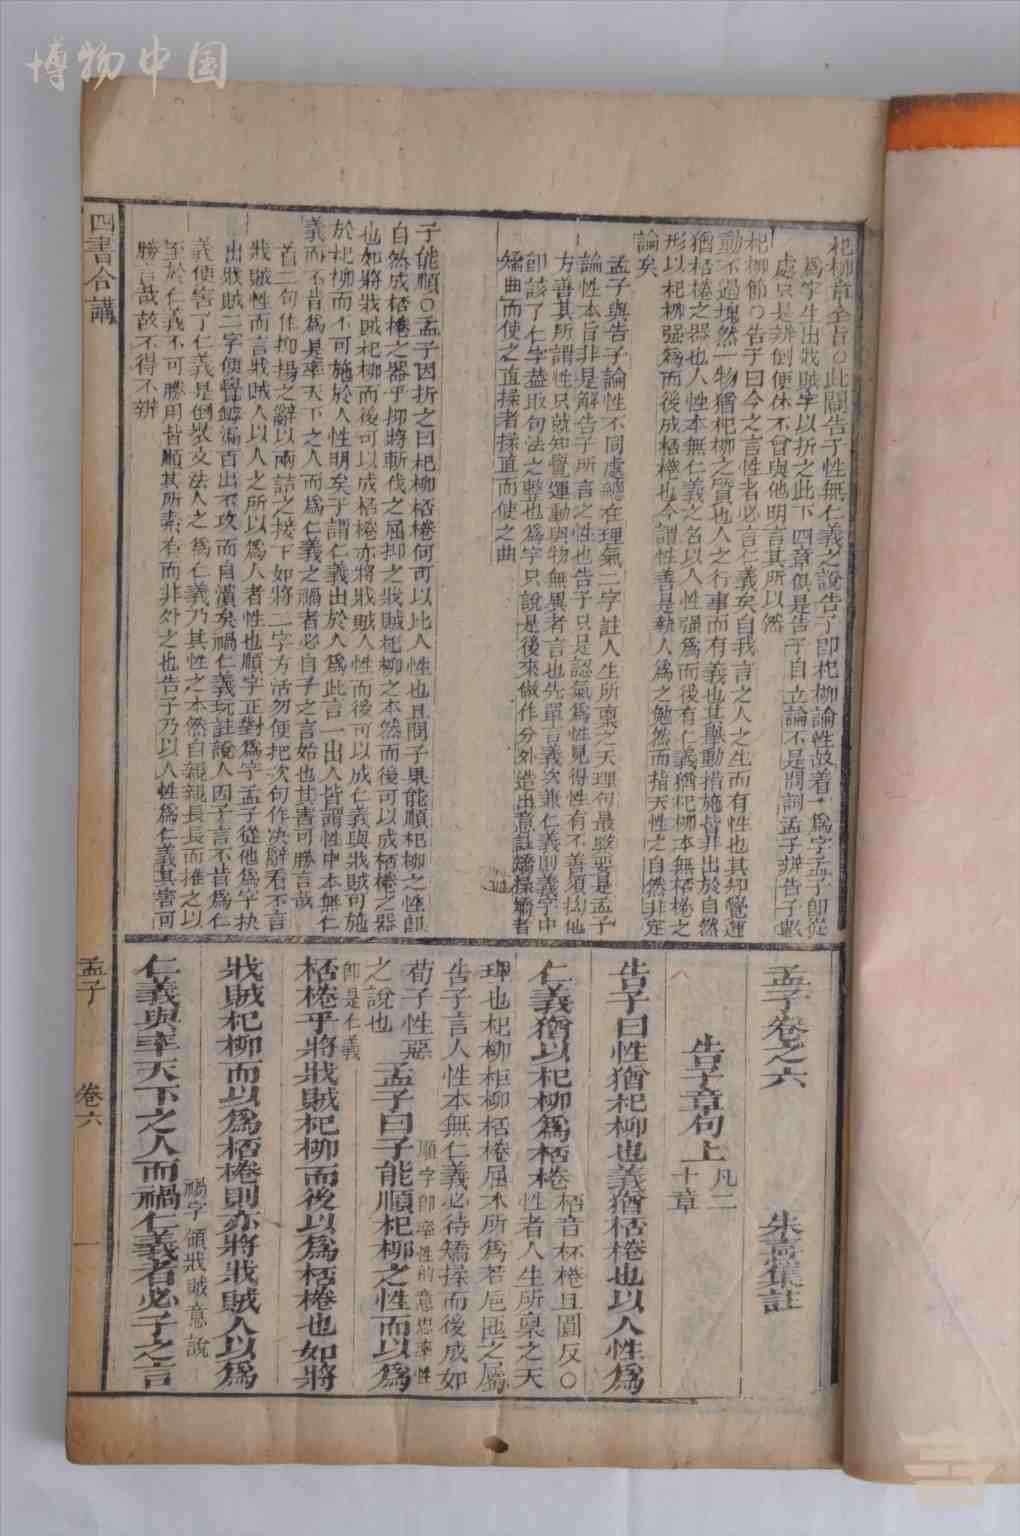 博物中国
杞柳章全旨○此闢告子性無仁義之說告子即杞柳論性故着一爲字孟子即從
爲字生出戕賊字以折之此下四章俱是告子自立論不是問詞孟子辨告子
處只是辨倒便休不曾與他明言其所以然
杞柳節○告子曰今之言性者必言仁義矣自我言之人之生而有性也其知覺運
動不過塊然一物猶杞柳之質也人之行事而有義也其舉動措施皆非出於自然
猶桮棬之器也人性本無仁義之名以人性强爲而後有仁義猶杞柳本無桮棬之
形以杞柳强爲而後成桮棬也今謂性善是執人爲之勉然而指天性之自然非定
論矣
孟子與告子論性不同處總在理氣二字註人生所禀之天理句最緊要是孟子
論性本旨非是解告子所言之性也告子只是認氣爲性見得性有不善須
方善其所謂性只就知覺運動與物無異者言也先單言義次兼仁義則義字中
卽該了仁字蓋取句法之整也爲字只說是後來做作分外造出意註矯揉矯者
矯曲而使之直揉者揉直而使之曲
子能順○孟子因折之曰杞柳桮棬何可以比人性也且問子果能順杞柳之性即
自然成桮棬之器乎抑將斬伐之屈抑之戕賊杞柳之本然而後可以成桮棬之器
也如將戕賊杞柳而後可以成桮棬亦將戕賊人性而後可以成仁義與戕賊可施
於杞柳而不可施於人性明矣子謂仁義出於人爲此言一出人皆謂性中本無仁
義而不肯爲是率天下之人而爲仁義之禍者必自子之言始也其害可勝言哉
首二句作抑揚之辭以兩詰之接下如將二字方活勿便把次句作决辭看不言
戕賊性而言戕賊人以人之所以爲人者性也順字正對爲字孟子從他爲字抉
出戕賊二字便覺罅漏百出不攻而自潰矣禍仁義玩註說人因子言不肯爲仁
義便害了仁義是倒裝文法人之爲仁義乃其性之本然自親親長長而推之以
至於仁義不可勝用皆順其所素有而非外之也告子乃以人性爲仁義其害可
勝言哉故不得不辨
孟子卷之六
朱熹集註
告子章句上
凡二
十章
告子曰性猶杞柳也義猶桮棬也以人性爲
仁義猶以杞柳爲桮棬
桮音杯棬且圓反○
性者人生所稟之天
理也杞柳柜柳桮棬屈木所爲若卮匜之屬
告子言人性本無仁義必待矯揉而後成如
荀子性惡
之說也
孟子曰子能順杞柳之性而以爲
順字卽率性的意思率性
卽是仁義
桮棬乎將戕賊杞柳而後以爲桮棬也如將
戕賊杞柳而以爲桮棬則亦將戕賊人以爲
仁義與率天下之人而禍仁義者必子之言
禍字頂戕賊意說
四書合講
孟子
卷六
一